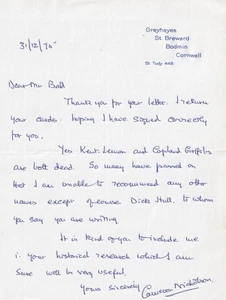 Greyhayes
St. Breward
Bodmin
Cornwall
St. Tudy 448
31/12/75
Dear Mr Ball
Thank you for your letter. I return
your cards. hoping I have signed correctly
for you.
Yes Kent Lemon and Copland Griffiths
are both dead. So many have passed on
that I am unable to recommend any other
names except of course Dick Hull, to whom
you say you are writing.
It is kind of you to include me
in your historical research which I am
sure will be very useful.
Yours sincerely
Cameron Nicholson.